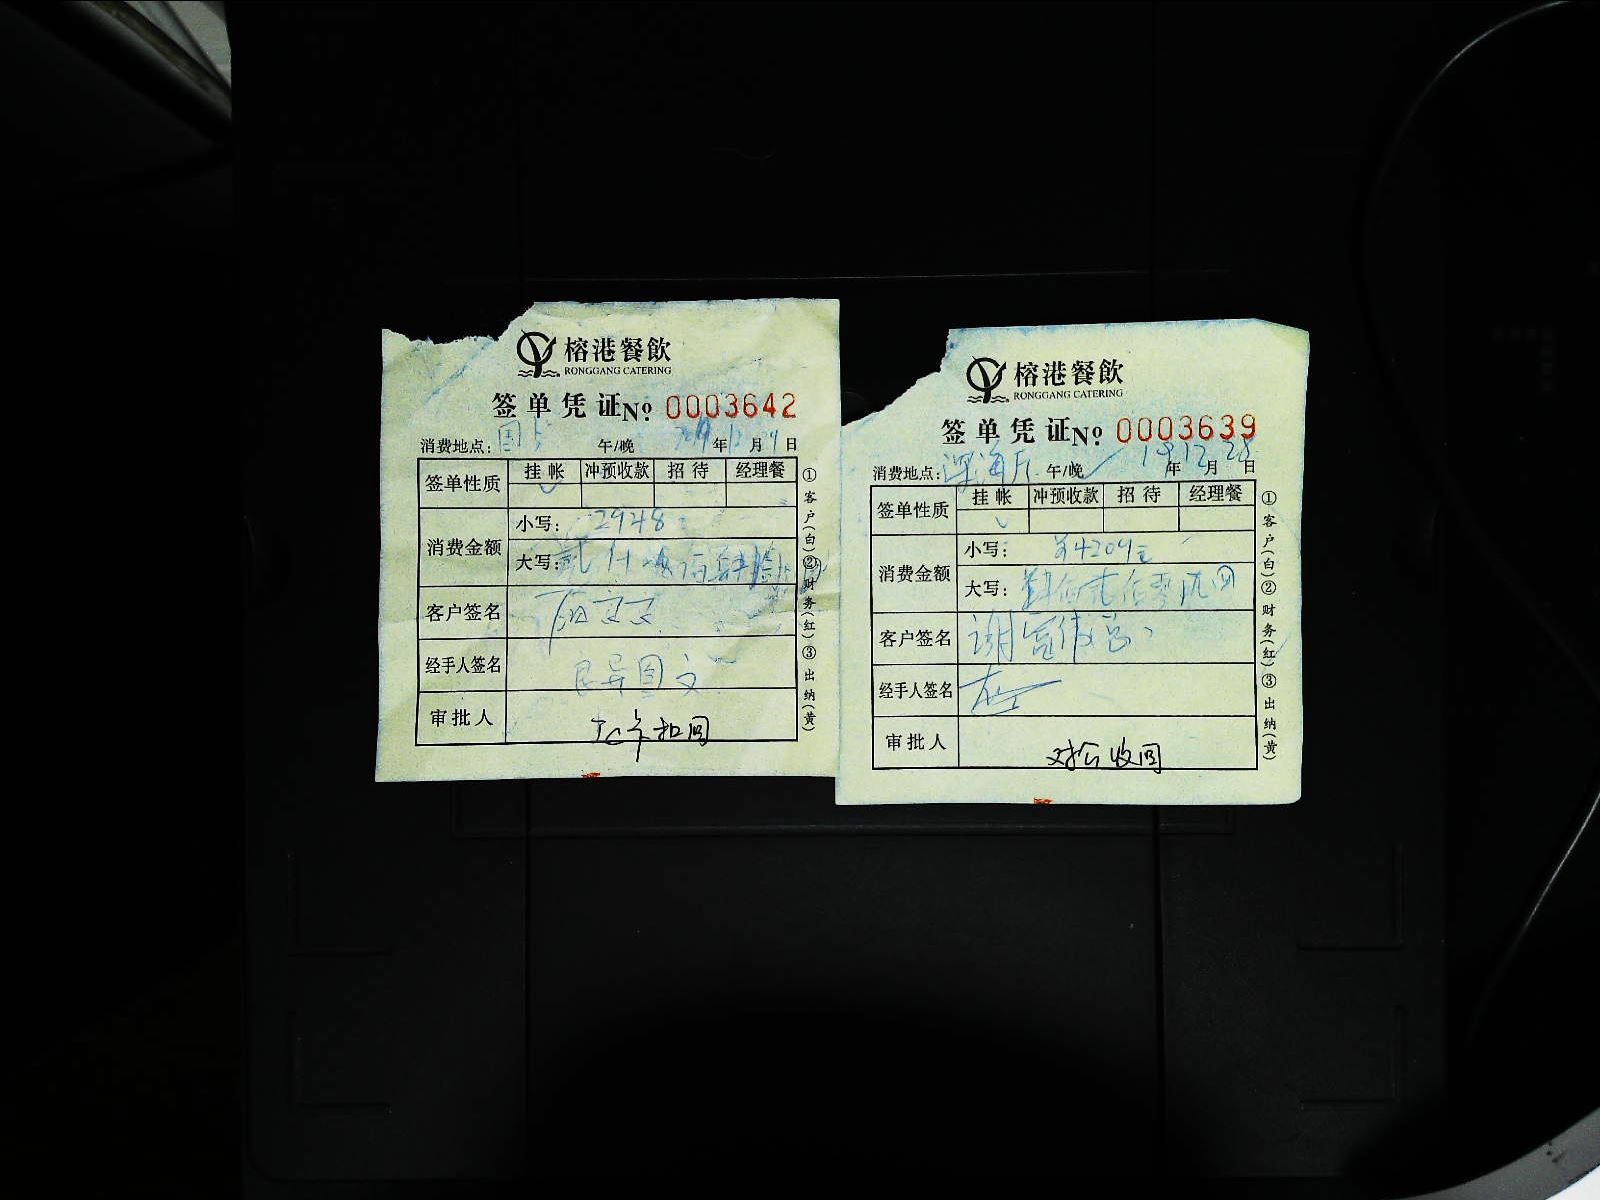 榕港餐飲
RONGGANG CATERING
签单凭证 No 0003642
消费地点： 午/晚 年12月 日
签单性质 挂帐 冲预收款 招待 经理餐
消费金额 小写： 2948
大写：
客户签名
经手人签名
审批人
①客户(白)②财务(红)③出纳(黄)
榕港餐飲
RONGGANG CATERING
签单凭证 No 0003639
消费地点： 深海 午/晚 19年12月28日
签单性质 挂帐 冲预收款 招待 经理餐
消费金额 小写： ¥4204元
大写：
客户签名 谢
经手人签名
审批人 对公收回
①客户(白)②财务(红)③出纳(黄)